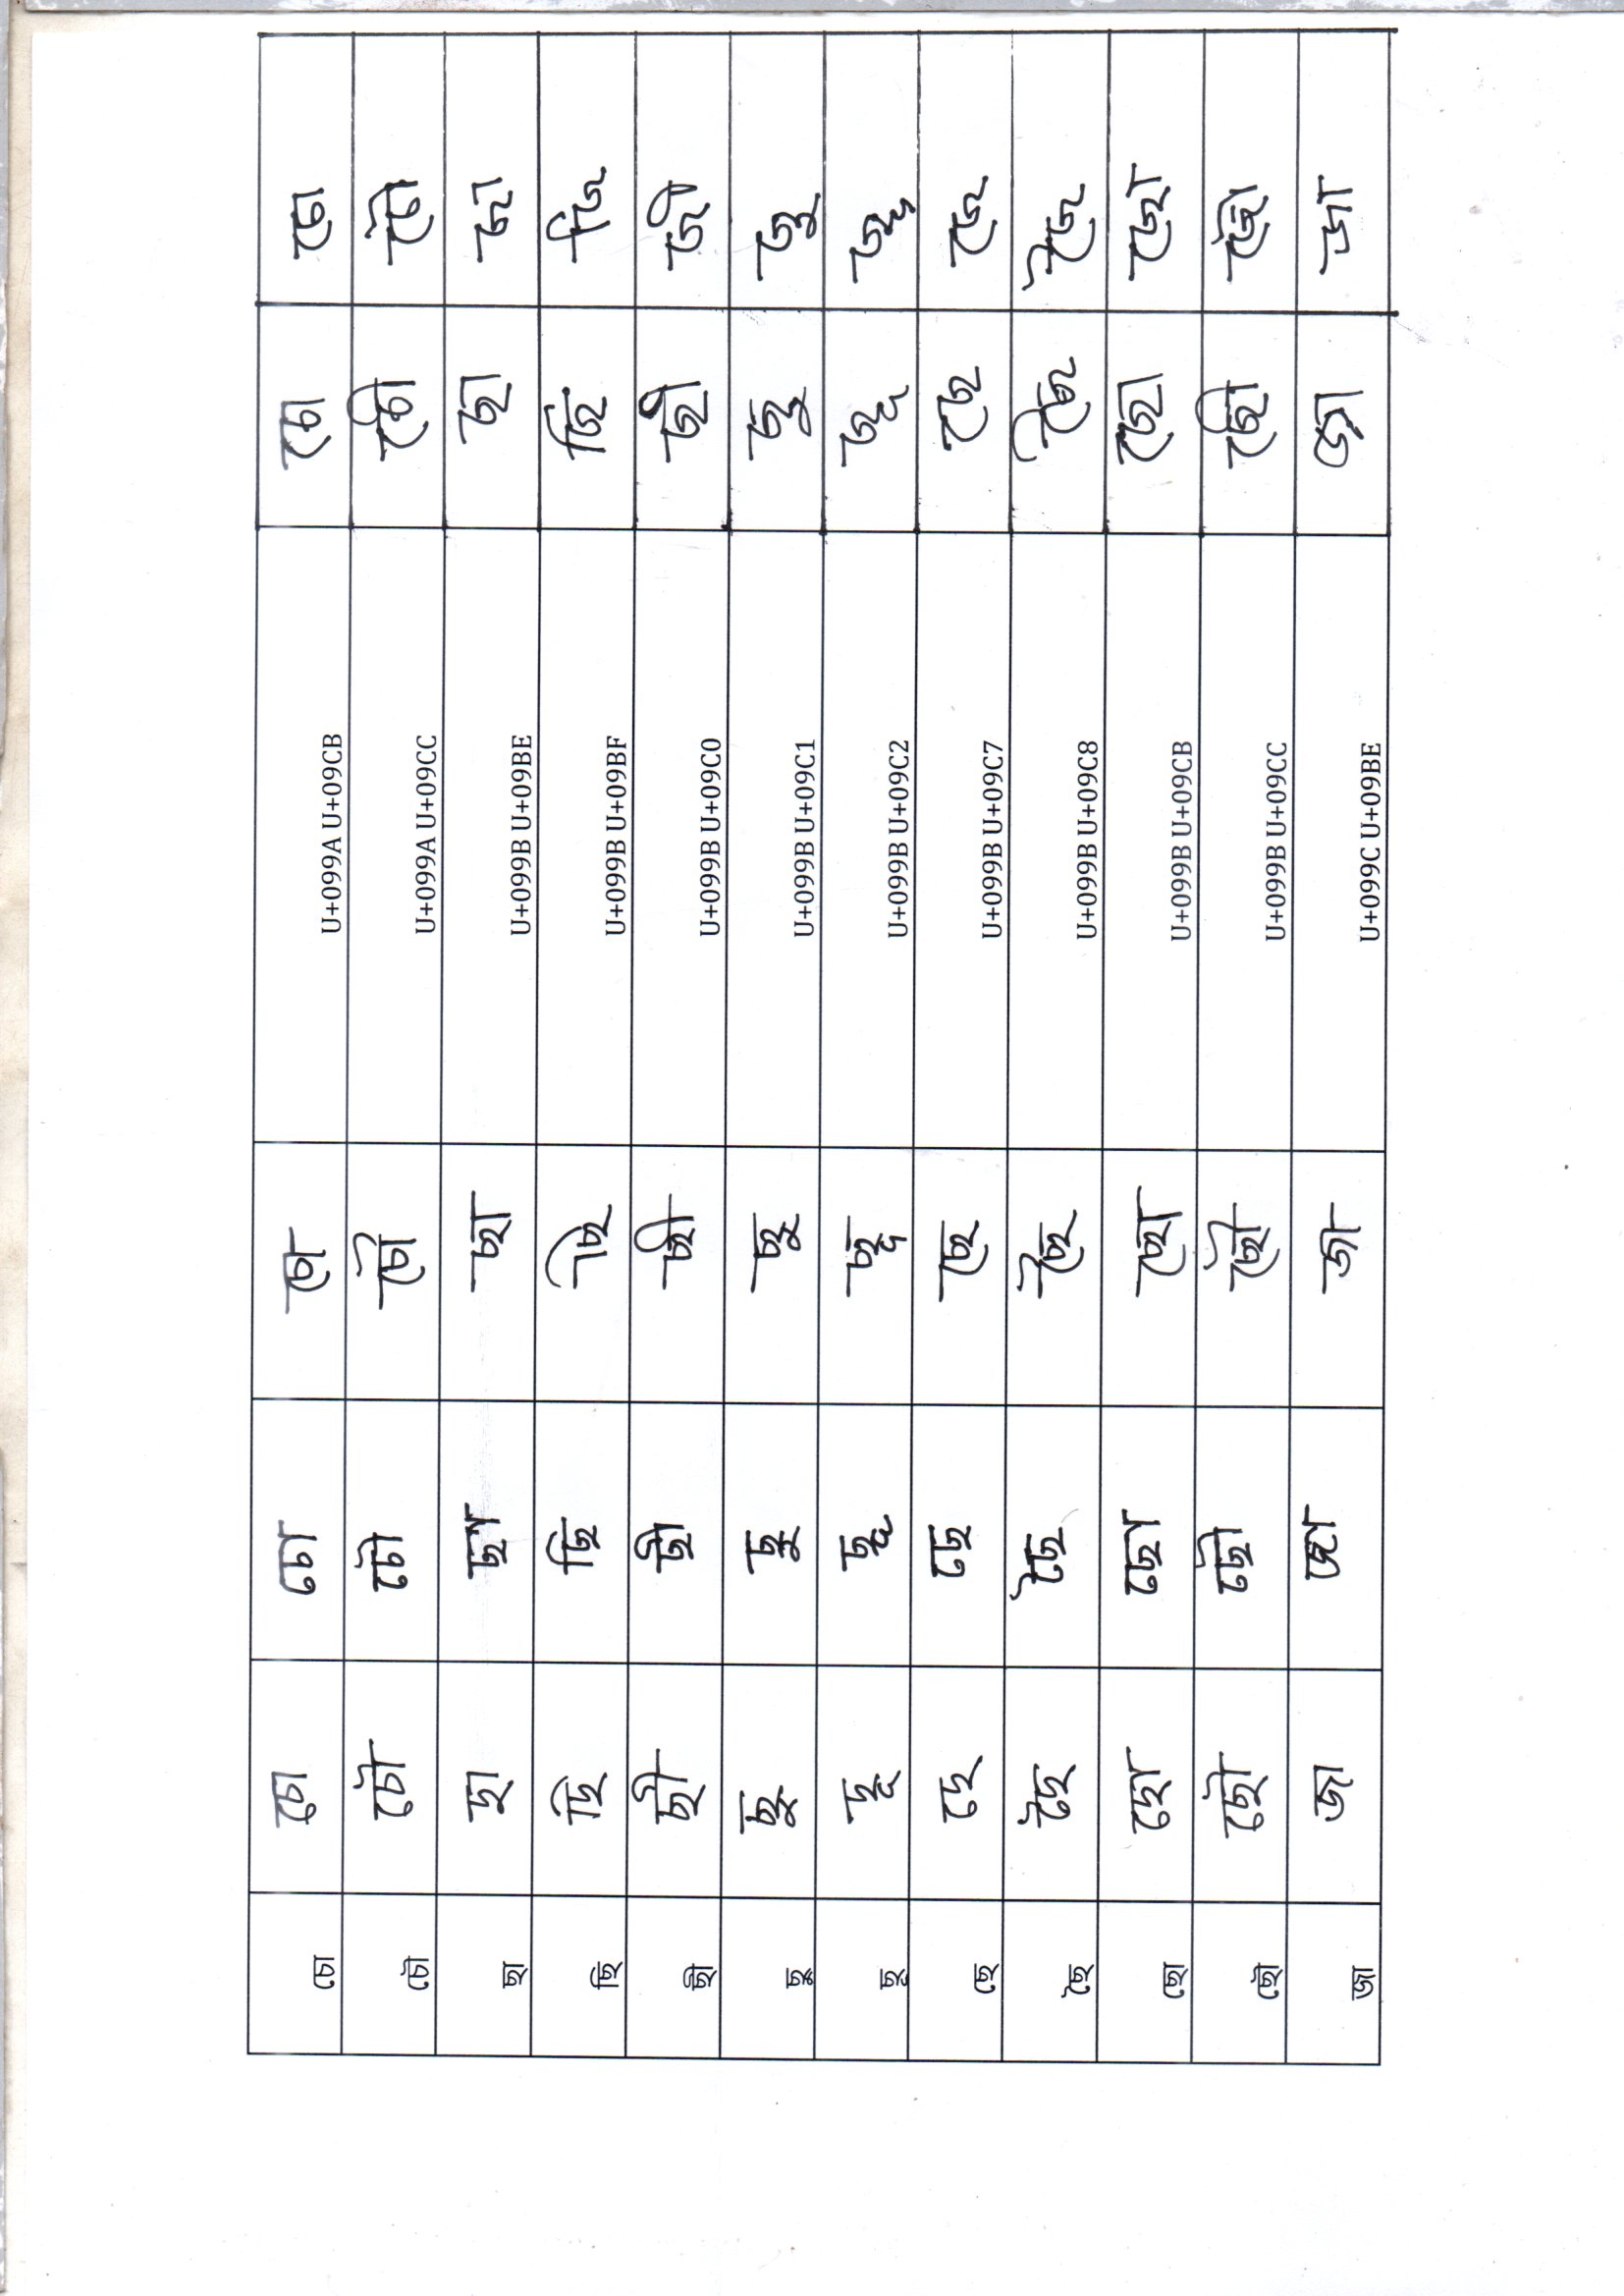 চো চো চো চো U+099A U+09CB চো চো
চৌ চৌ চৌ চৌ U+099A U+09CC চৌ চৌ
ছা ছা ছা ছা U+099B U+09BE ছা ছা
ছি ছি ছি ছি U+099B U+09BF ছি ছি
ছী ছী ছী ছী U+099B U+09C0 ছী ছী
ছু ছু ছু ছু U+099B U+09C1 ছু ছু
ছূ ছূ ছূ ছূ U+099B U+09C2 ছূ ছূ
ছে ছে ছে ছে U+099B U+09C7 ছে ছে
ছৈ ছৈ ছৈ ছৈ U+099B U+09C8 ছৈ ছৈ
ছো ছো ছো ছো U+099B U+09CB ছো ছো
ছৌ ছৌ ছৌ ছৌ U+099B U+09CC ছৌ ছৌ
জা জা জা জা U+099C U+09BE জা জা